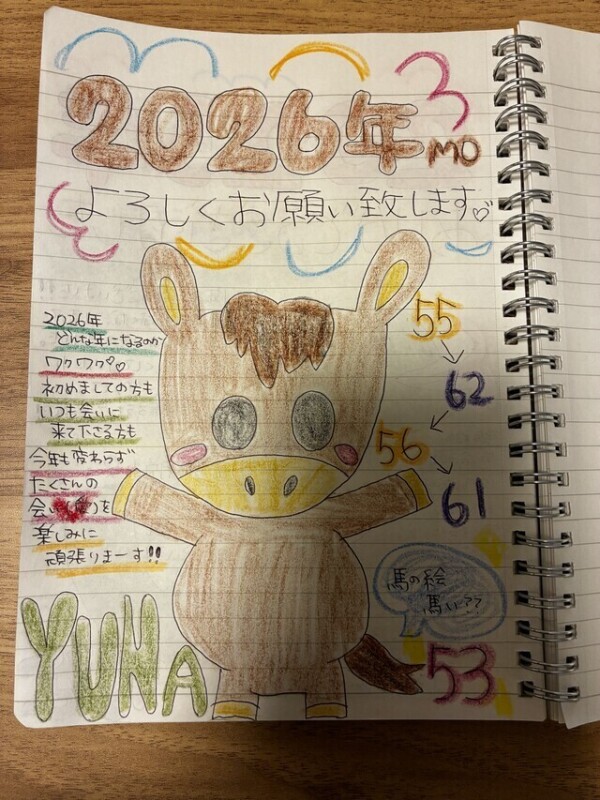 2026年MO
よろしくお願い致します♡
2026年
どんな年になるのか
ワクワク♡♡
初めましての方も
いつも会いに
来て下さる方も
今年も変わらず
たくさんの
会い を
楽しみに
頑張りまーす!!
55
↓
62
↓
56
↓
61
馬の絵
馬い??
53
YUNA